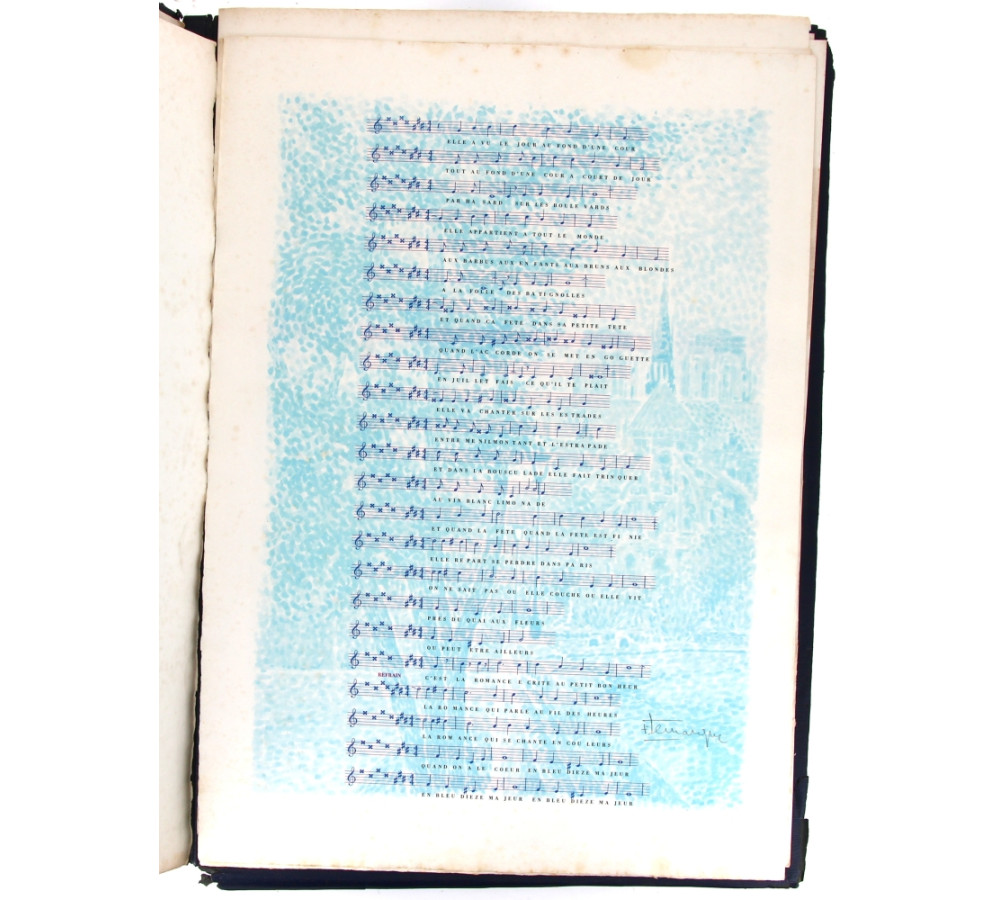 ELLE A VU LE JOUR AU FOND D'UNE COUR
TOUT AU FOND D'UNE COUR A COURT DE JOUR
PAR HA SARD SUR LES BOULE VARDS
ELLE APPARTIENT A TOUT LE MONDE
AUX BARBUS AUX EN FANTS AUX BRUNS AUX BLONDES
A LA FOLLE DES BATIGNOLLES
ET QUAND CA FETE DANS SA PETITE TETE
QUAND L'AC CORDE ON SE MET EN GO GUETTE
EN JUIL LET FAIS CE QU'IL TE PLAIT
ELLE VA CHANTER SUR LES ESTRADES
ENTRE ME NILMON TANT ET L'ESTRA PADE
ET DANS LA BOUSCU LADE ELLE FAIT TRIN QUER
AU VIN BLANC LIMO NA DE
ET QUAND LA FETE QUAND LA FETE EST FI NIE
ELLE RE PART SE PERDRE DANS PA RIS
ON NE SAIT PAS OU ELLE COUCHE OU ELLE VIT
PRÈS DU QUAI AUX FLEURS
OU PEUT ETRE AILLEURS
REFRAIN
C'EST LA ROMANCE E CRITE AU PETIT BON HEUR
LA RO MANCE QUI PARLE AU FIL DES HEURES
LA ROM ANCE QUI SE CHANTE EN COU LEURS
QUAND ON A LE COEUR EN BLEU DIEZE MA JEUR
EN BLEU DIEZE MA JEUR EN BLEU DIEZE MA JEUR